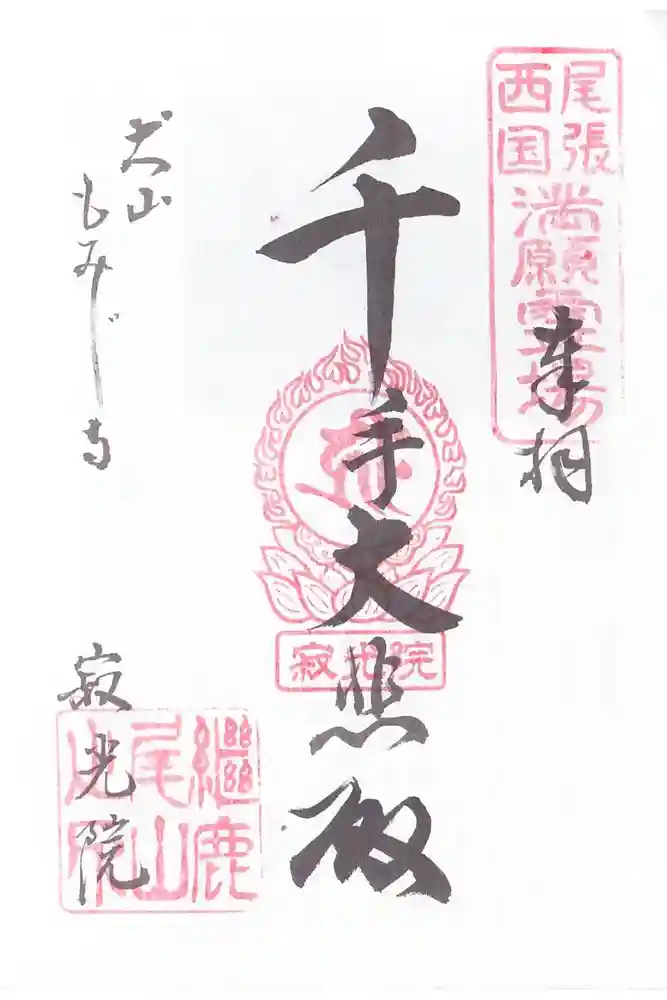 尾張
西国
満願霊場
奉拝
千手大悲殿
寂光院
犬山
もみじ寺
寂光院
繼鹿
尾山